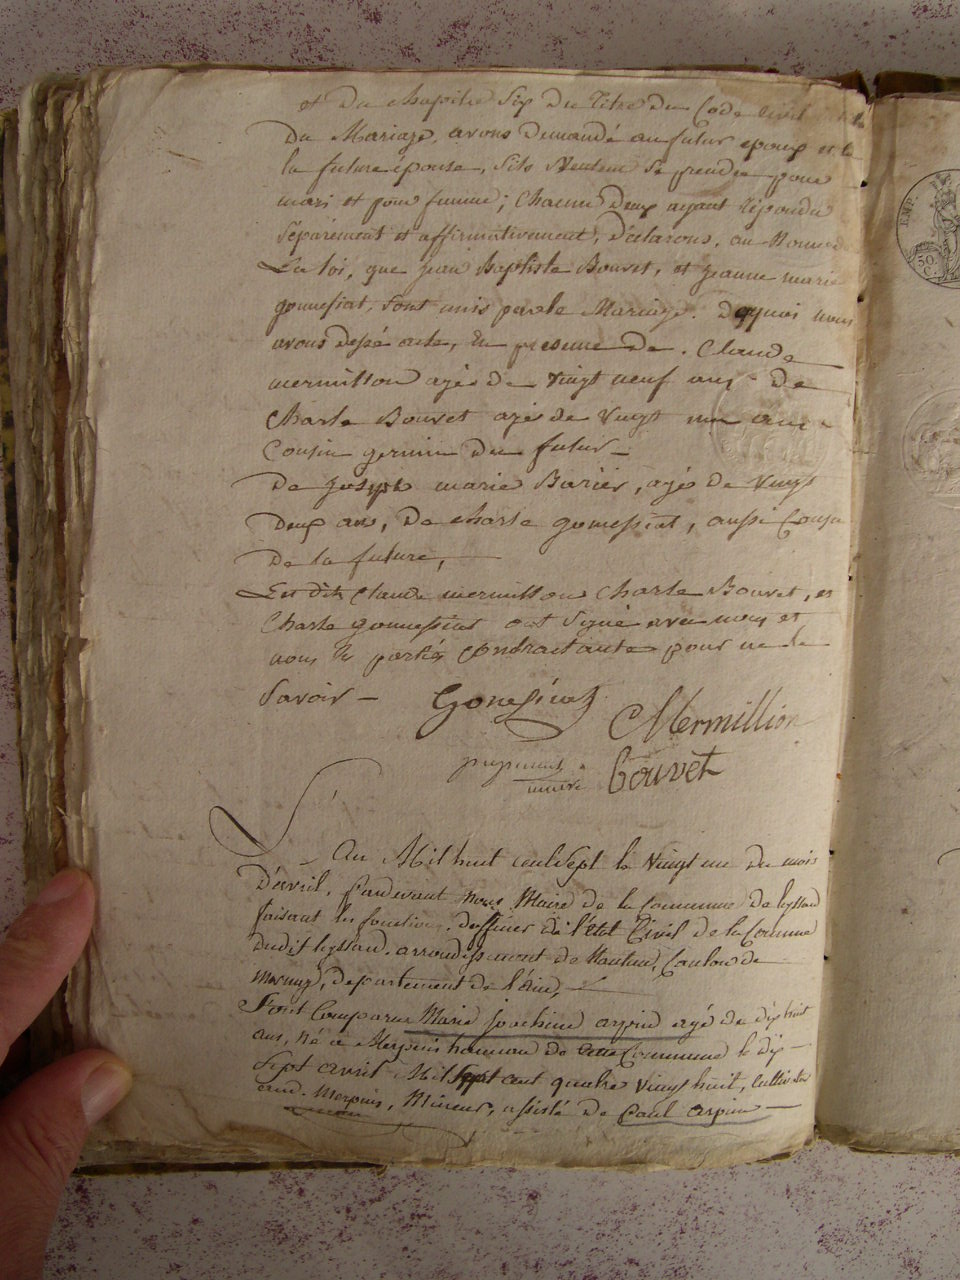 et Du chapitre Six Du Titre Du Code Civil
Du Mariage, avons Demandé au futur epoux et a
la future épouse, Sils Veulent Se prendre pour
mari et pour femme; Chacun Deux ayant Répondu
Séparément et affirmativement, Déclarons, au Nom de
La loi, que jean Baptiste Bouvet, et jeanne marie
gonnesiat, Sont unis par le Mariage. De quoi nous
avons Dressé acte, En presence De. Claude
mermillon agés de Vingt neuf ans De
Charle Bouvet agés de Vingt un ans
Cousin germin Du futur —
De Joseph marie Burier, agé de Vingt
Deux ans, De charle gonnessiat, aussi Cousin
De la future,
Les dits Claude mermillon Charle Bouvet, et
Charle gonnessiat ont Signé avec nous et
non le parties Contractante pour ne le
Savoir — Gonesiat
CMermillion
maire Bouvet
An Mil huit cent Sept le Vingt un du mois
D'avril, pardevant Nous Maire de la Commune de leyssard
faisant les fonctions D'officier de l'état Civil de la Commune
Dudit leyssard. arrondissement de Nantua, Canton de
, Departement de l'Ain,
Sont Comparu Marie joachim arpin agé de dix huit
ans, né a Merpuis hameau De cette Commune le dix-
Sept avril Mil Sept cent quatre vingt huit, Cultivateur
aud. Merpuis, Mineur, assisté De Paul arpin —
EMP.
50
C.